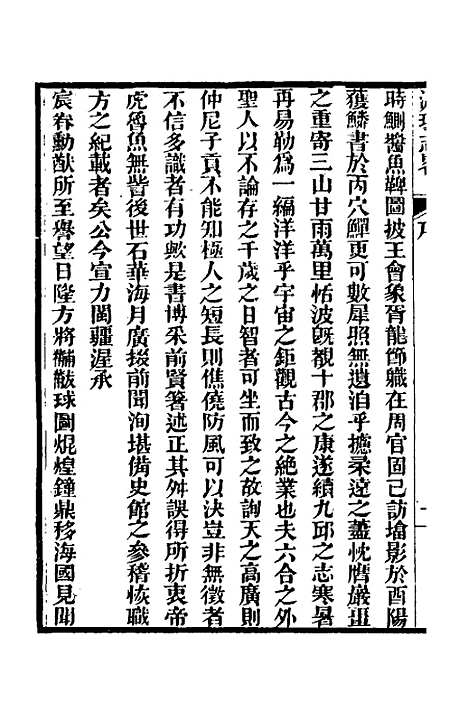 時鰂醬魚鞞圖披王會象胥龍節職在周官固已訪墖影於酉陽
獲鱗書於丙穴鱓更可數犀照無遺洎乎攄柔遠之藎忱膺巖疆
之重寄三山甘雨萬里恬波旣覩十郡之康遂續九邱之志寒暑
再易勒爲一編洋洋乎宇宙之鉅觀古今之絕業也夫六合之外
聖人以不論存之千歲之日智者可坐而致之故詢天之高廣則
仲尼子貢不能知極人之短長則僬僥防風可以決豈非無徵者
不信多識者有功歟是書博采前賢箸述正其舛誤得所折衷帝
虎魯魚無訾後世石華海月廣掇前聞洵堪備史館之參稽恢職
方之紀載者矣公今宣力閩疆渥承
宸眷勳猷所至譽望日隆方將黼黻球圖焜煌鐘鼎移海國見聞